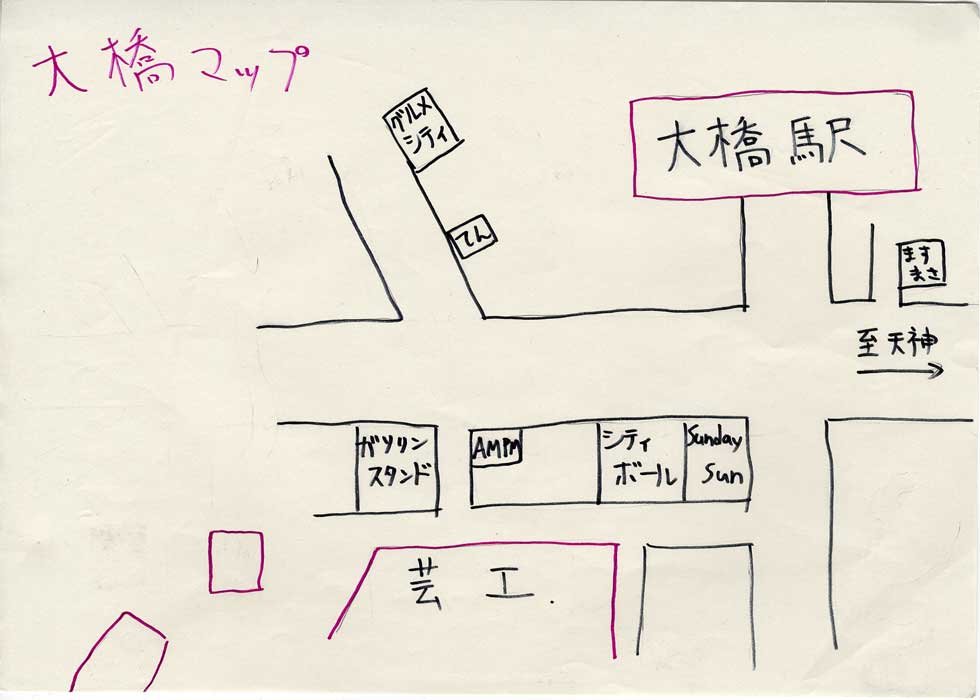 大橋マップ
グルメ
シティ
大橋駅
てん
ます
まさ
至天神
ガソリン
スタンド
AMPM
シティ
ボール
Sunday
Sun
芸工.